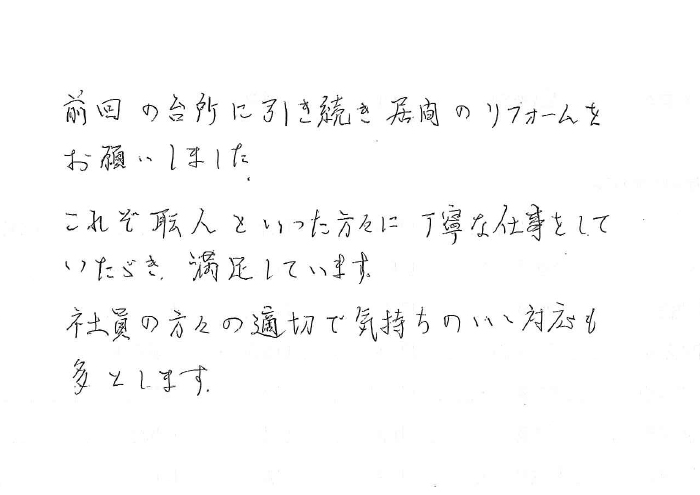 前回の台所に引き続き居間のリフォームを
お願いしました.
これぞ職人といった方々に丁寧な仕事をして
いただき、満足しています.
社員の方々の適切で気持ちのいい対応も
多とします.